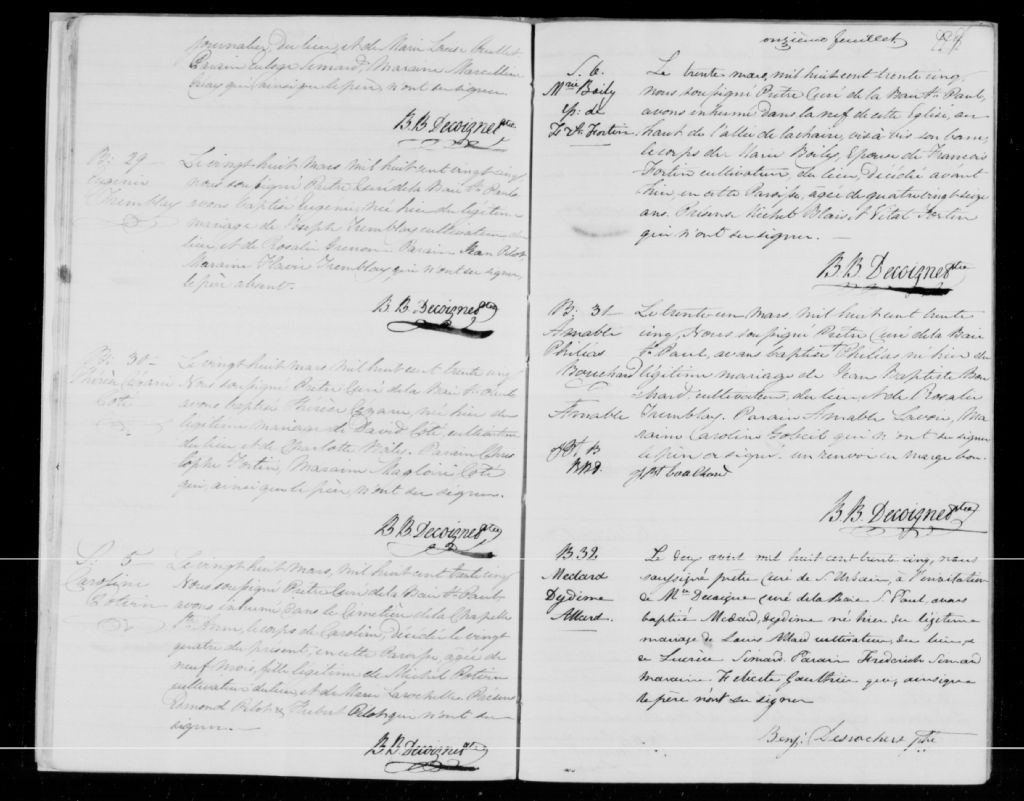 journalier, du lieu, et de Marie Louise
Parain Eloge Simard, Maraine Marcelline
qui, ainsi que le père, n'ont su signer
B. B. Decoigne Ptre
B: 29
Eugénie
Tremblay
Le vingt huit Mars mil huit cent vingt cinq
nous soussigné Prêtre Curé de la Baie St. Paul,
avons baptisé Eugenie, née hier du légitime
mariage de Joseph Tremblay cultivateur du
lieu et de Rosalie Grenon. Parain Jean Pilote
Maraine Flavie Tremblay, qui n'ont su signer,
le père absent.
B. B. Decoigne Ptre
B: 30
Côté
Le vingt huit Mars mil huit cent trente cinq
Nous soussigné Prêtre Curé de la Baie St. Paul
avons baptisé Thérèse Césarie, née hier du
légitime mariage de David Coté, cultivateur
du lieu et de Charlotte Boily. Parain Chris
tophe Fortin, Maraine Magloire Coté
qui, ainsi que le père, n'ont su signer.
B. B. Decoigne Ptre
S. 5
Caroline
Potvin
Le vingt huit Mars, mil huit cent trente cinq
Nous soussigné Prêtre Curé de la Baie St. Paul,
avons inhumé dans le Cimetière de la Chapelle
Ste. Anne, le corps de Caroline, décédée le vingt
quatre du présent, en cette Paroisse, agée de
neuf mois, fille légitime de Michel Potvin
cultivateur du lieu, et de Marie Larochelle. Présens
Edmond Pilote & Hubert Pilote qui n'ont su
signer.
B. B. Decoigne Ptre
onzième feuillet
S. 6.
Mrie Boily
Ep: de
Fr. Fortin
Le trente mars, mil huit cent trente cinq,
nous soussigné Prêtre Curé de la Baie St. Paul,
avons inhumé dans la nef de cette Eglise, au
haut de l'allée de la chaire, vis à vis son banc,
le corps de Marie Boily, Epouse de Francois
Fortin cultivateur, du lieu, décédée avant
hier, en cette Paroisse, agée de quatre vingt seize
ans. Présens Michel Blais & Vital Fortin
qui n'ont su signer.
B. B. Decoigne Ptre
B: 31
Amable
Philias
Bouchard
Amable
JBt B
BBD.
Le trente-un Mars, mil huit cent trente
cinq, Nous soussigné Prêtre Curé de la Baie
St. Paul, avons baptisé Philias né hier du
légitime mariage de Jean Baptiste Bou
chard, cultivateur, du lieu, et de Rosalie
Tremblay. Parain Amable Lavoie, Ma
raine Caroline Gobeil qui n'ont su signer
le père a signé. un renvoi en marge bon.
JBt bouchard
B. B. Decoigne Ptre
B 32.
Medard
Dydime
Allard.
Le deux avril mil huit cent trente cinq, nous
soussigné prêtre curé de St Urbain, à l'invitation
de Mr. Decoigne curé de la Baie St. Paul, avons
baptisé Medard, Dydime né hier du légitime
mariage de Louis Allard cultivateur, du lieu, &
de Lucrèce Simard. Parain Frédérick Simard
maraine Felicité Gauthier qui, ainsi que
le père n'ont su signer
Benj. Desrochers Ptre